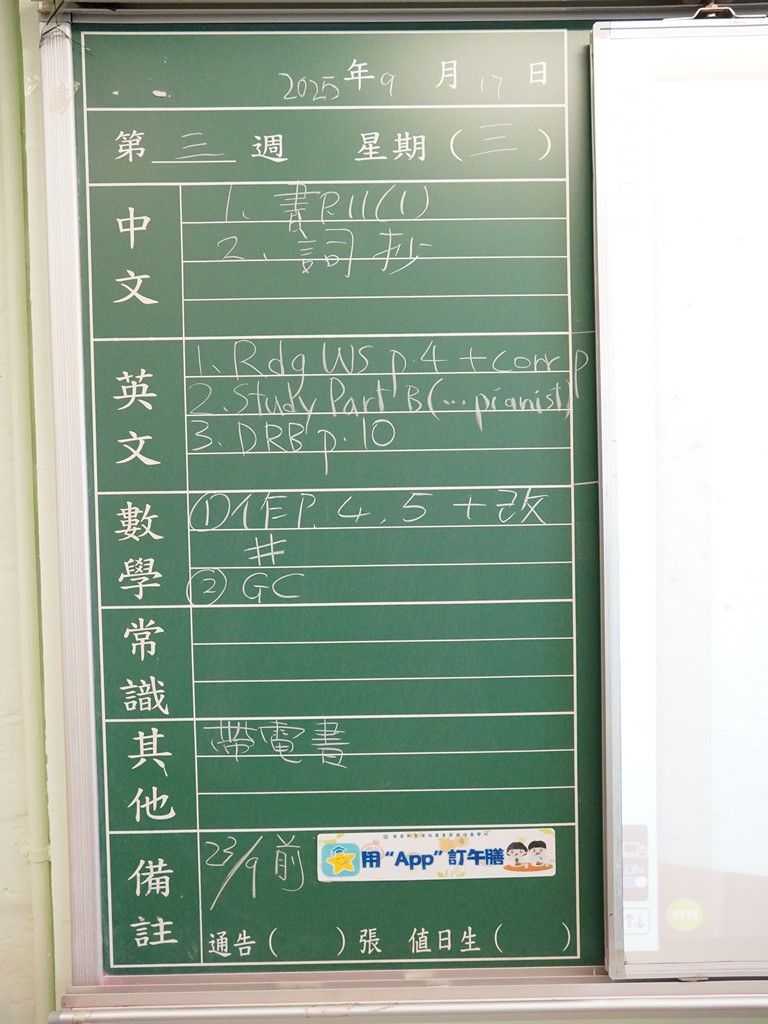 2025年9月17日
第三週 星期(三)
中文
1、書P.11(1)
2、詞抄
英文
1、Rdg WS p.4 + corr p
2.Study Part B(…pianist)
3.DRB p.10
數學
①作P.4,5+改
#
②GC
常識
其他
帶電書
備註
23/9前
用“App”訂午膳
通告( )張 值日生( )